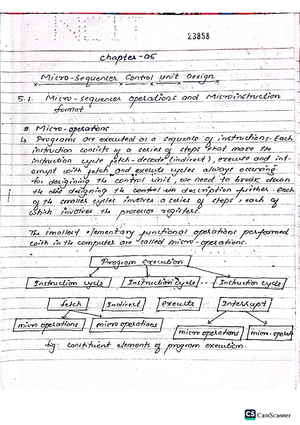 23858
Chapter-05
Micro-Sequencer Control Unit Design
5.1. Micro-sequencer operations and Microinstruction
format
# Micro-operations
↳ Programs are executed as a sequence of instructions. Each
instruction consists of a series of steps that make the
instruction cycle fetch-decode (indirect), execute and int-
errupt with fetch and execute cycles always occurring
for designing the control unit, we need to break down
the designing the control description further. Each
of the smaller cycles involves a series of steps, each of
which involves the processor registers.
The smallest elementary functional operations performed
with in the computer are called micro-operations.
Program execution
Instruction cycle Instruction cycle ... Instruction cycle
fetch Indirect execute Interrupt
micro operations micro operations micro operations micro-operat
fig: constituent elements of program execution.
CS CamScanner